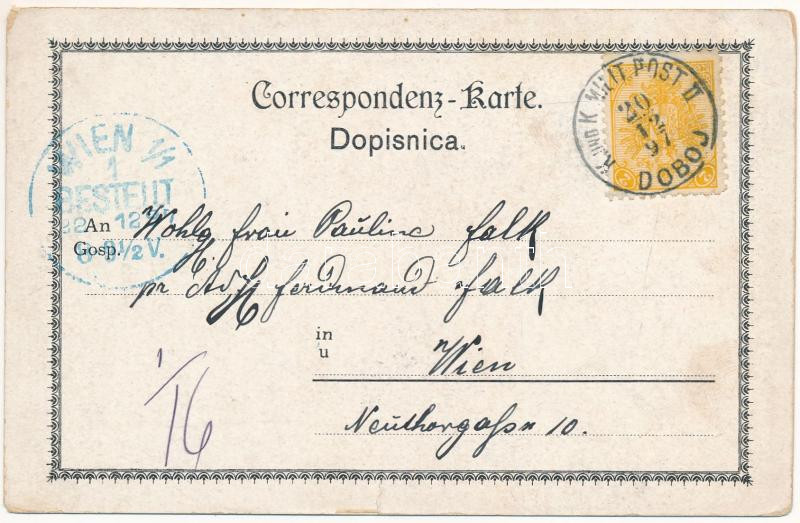 Correspondenz-Karte.
Dopisnica.
K. UND K. MILIT. POST II.
20
12
97
DOBOJ
WIEN 1/1
1
BESTELLT
22 12
8-9½ V.
An
Gosp.
Wohlg frau Pauline Falk
pr Adr Ferdinand Falk
in
u
Wien
Neuthorgasse 10.
1/16